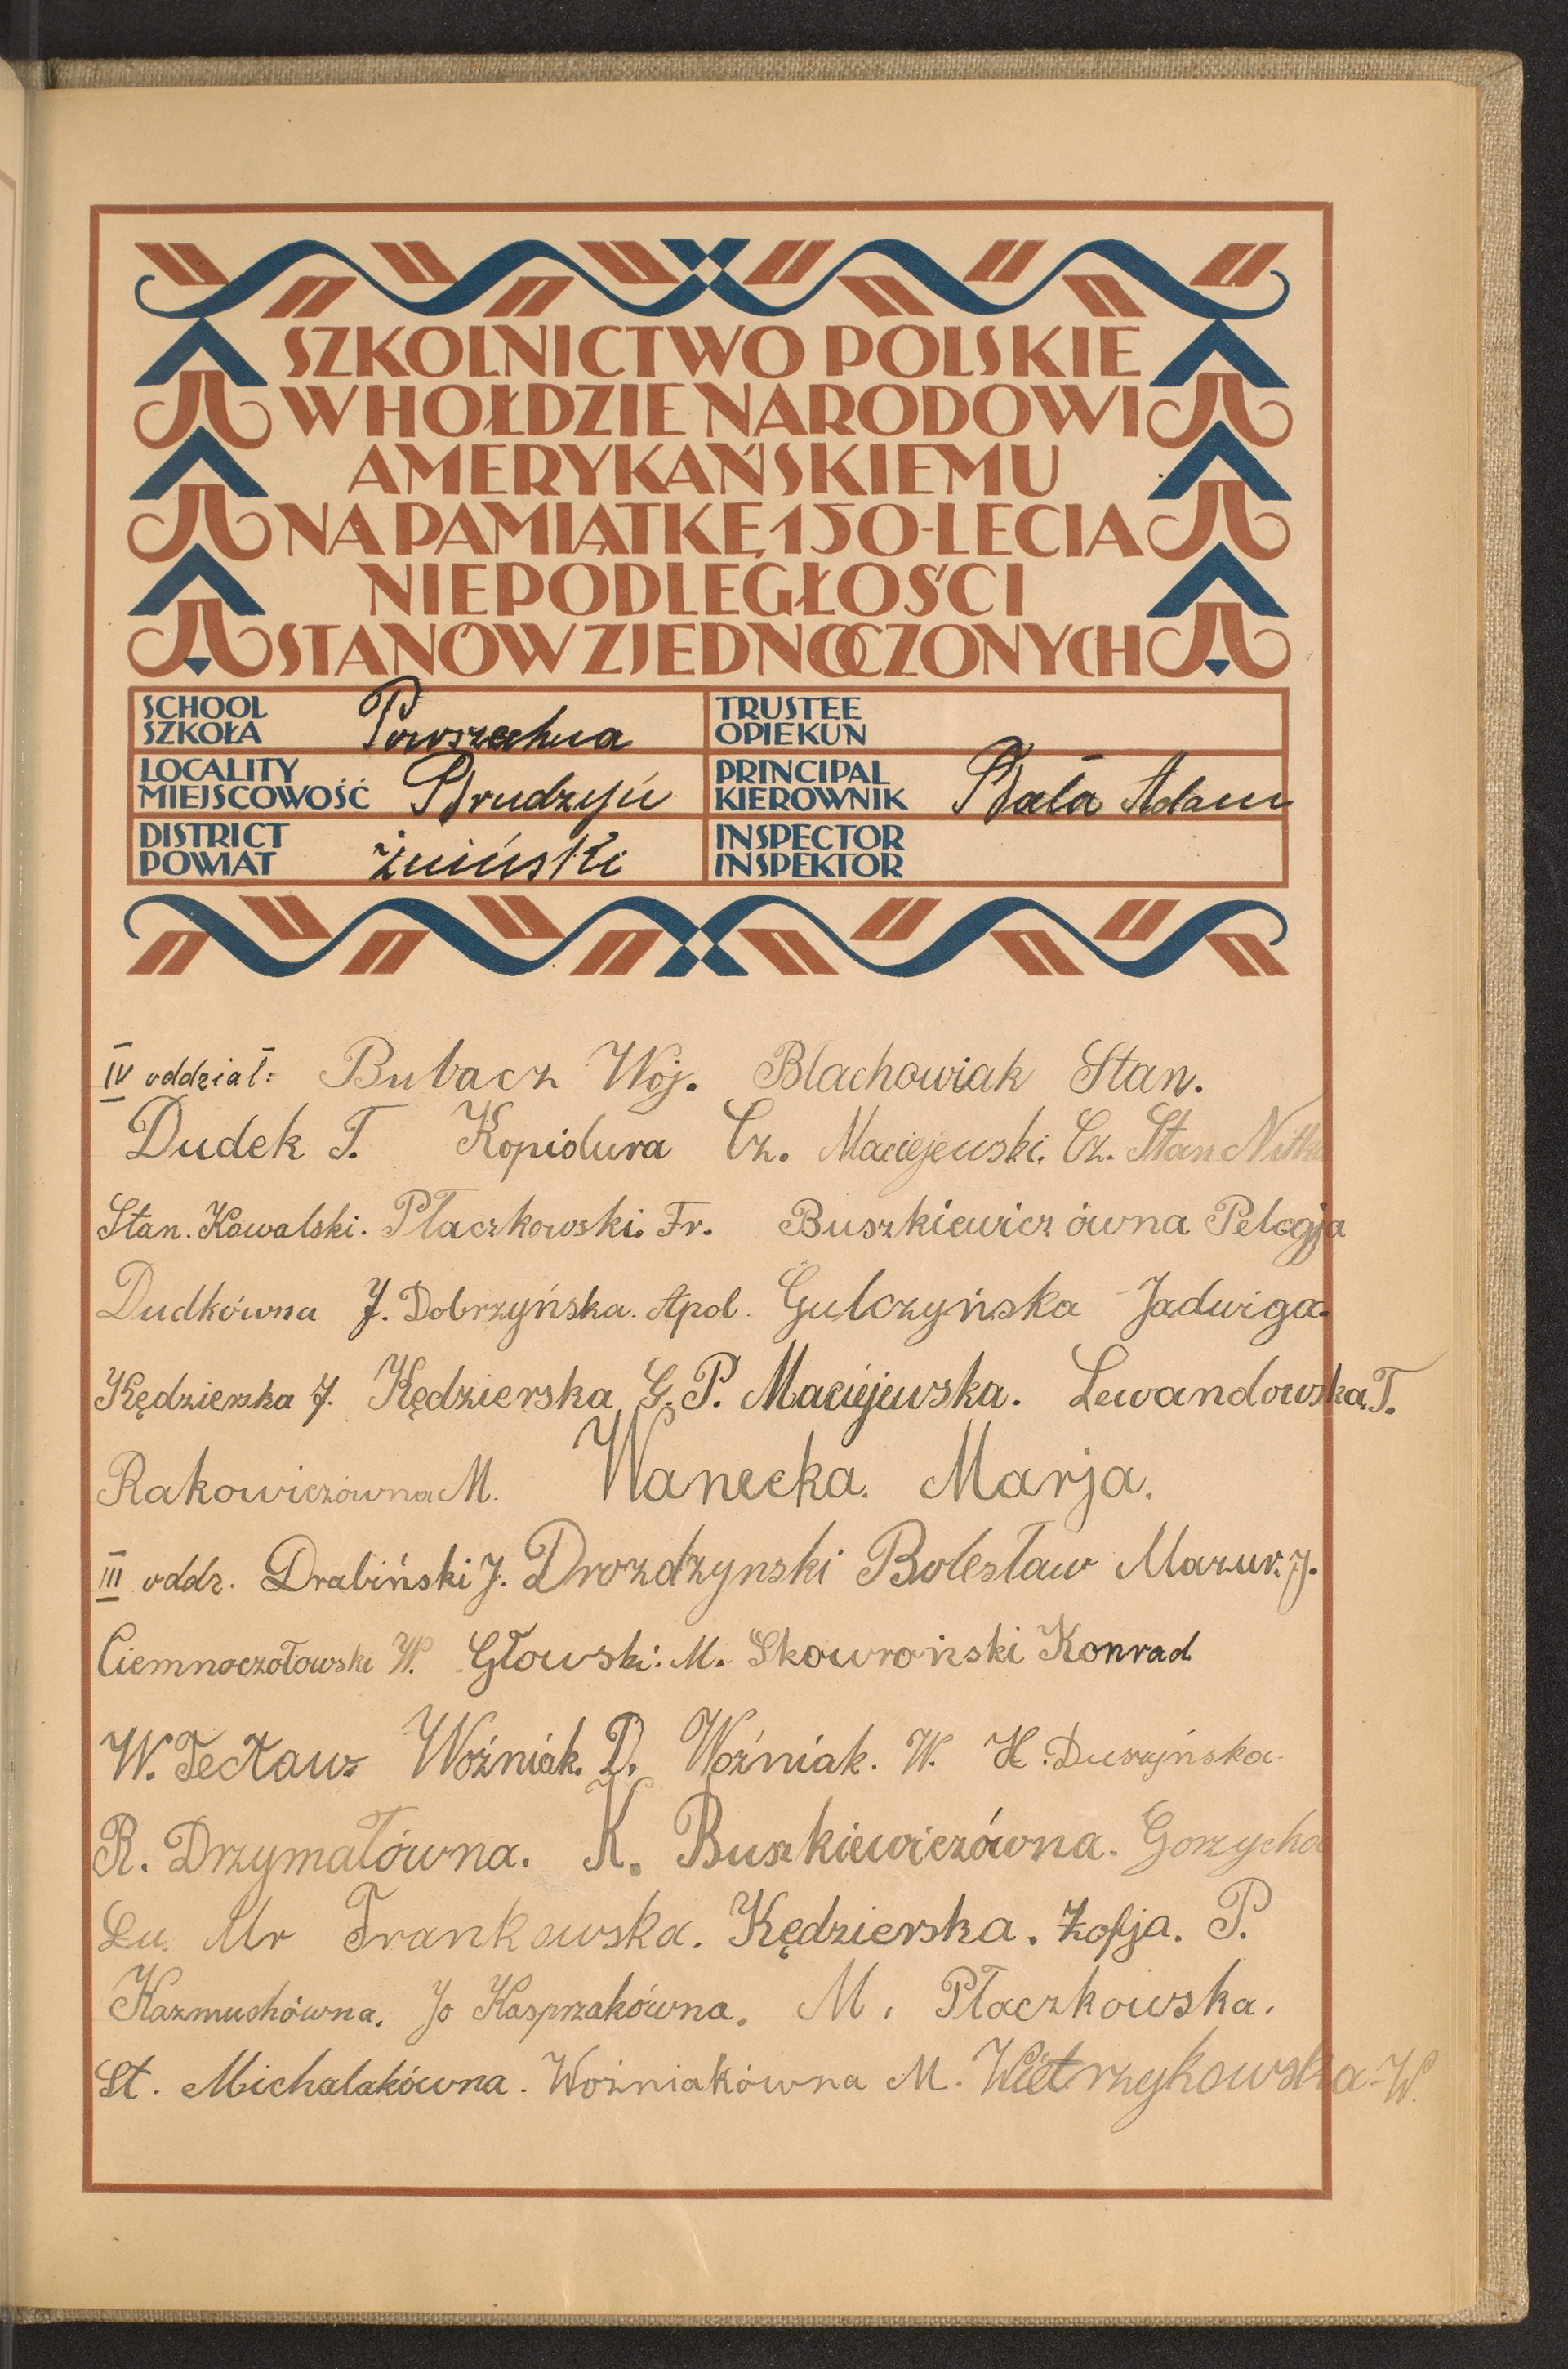 SZKOLNICTWO POLSKIE
W HOŁDZIE NARODOWI
AMERYKAŃSKIEMU
NA PAMIĄTKĘ 150-LECIA
NIEPODLEGŁOŚCI
STANÓW ZJEDNOCZONYCH
SCHOOL
SZKOŁA Powszechna
TRUSTEE
OPIEKUN
LOCALITY
MIEJSCOWOŚĆ Brudzyń
PRINCIPAL
KIEROWNIK Adam
DISTRICT
POWIAT żniński
INSPECTOR
INSPEKTOR
IV oddział: Bubacz Woj. Blachowiak Stan.
Dudek T. Kopidura Cz. Maciejewski. Cz. Stan
Stan. Kowalski. Płaczkowski. Fr. Buszkiewiczówna Pelagja
Dudkówna J. Dobrzyńska. Apol. Gulczyńska Jadwiga.
Kędzierska J. Kędzierska G. P. Maciejewska. Lewandowska. T.
Rakowiczówna M. Wanecka. Marja.
III oddz. Drabiński J. Drozdzynski Bolesław Mazur. J.
Ciemnoczołowski W. Głowski. M. Skowroński Konrad
W. Woźniak. D. Woźniak. W. H. Duszyńska.
R. Drzymałówna. K. Buszkiewiczówna. Gorzycha
Lu. Mr Frankowska. Kędzierska. Zofja. P.
Kazmuchówna. Jo Kasprzakówna. M. Płaczkowska.
St. Michalakówna. Woźniakówna M. Wietrzykowska-W.